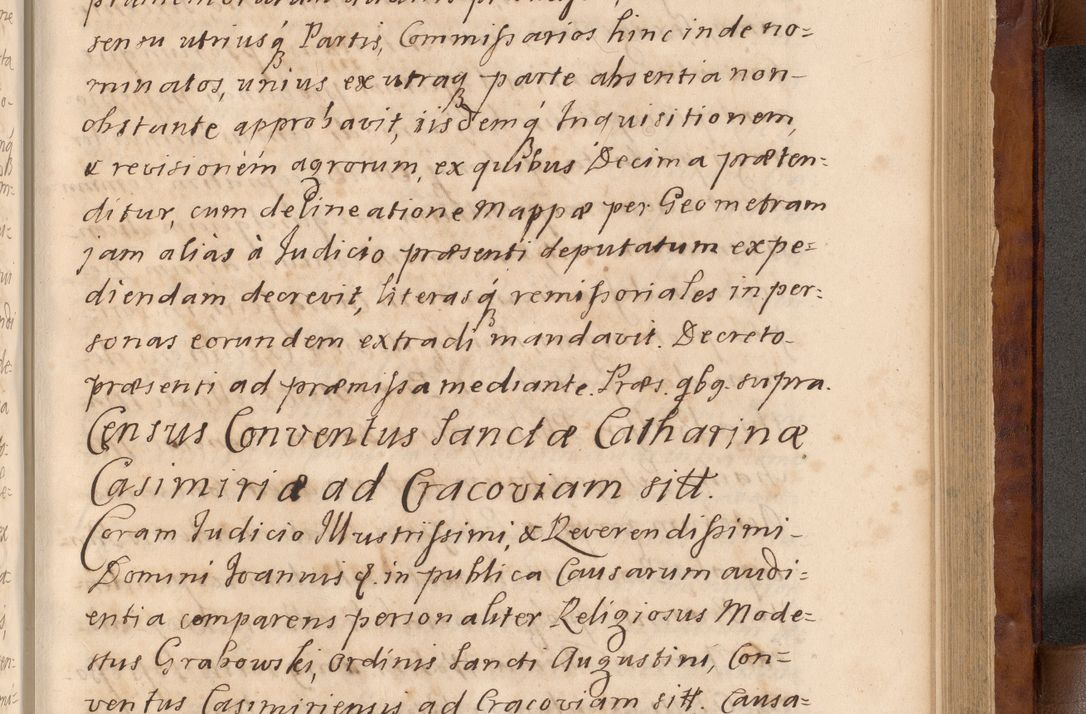 sensu utriusq́ Partis, Commißarios hinc inde no=
minatos, unius ex utraq parte absentia non-
obstante approbavit, iisdemq́ Inquisitionem,
& revisionem agrorum, ex quibus Decima præten=
ditur, cum delineatione Mappæ per Geometram
jam aliàs à Judicio præsenti deputatum expe=
diendam decrevit, literasq́ remißoriales in per=
sonas eorundem extradi mandavit. Decreto
præsenti ad præmißa mediante. Præs. qbq. supra.
Census Conventus Sanctæ Catharinæ
Casimiriæ ad Cracoviam sitt.
Coram Judicio Illustrißimi, & Reverendißimi-
Domini Joannis &. in publica Causarum audi=
entia comparens personaliter Religiosus Mode=
stus Grabowski, Ordinis Sancti Augustini, Con=
ventus Casimiriensis ad Cracoviam sitt. Causa=